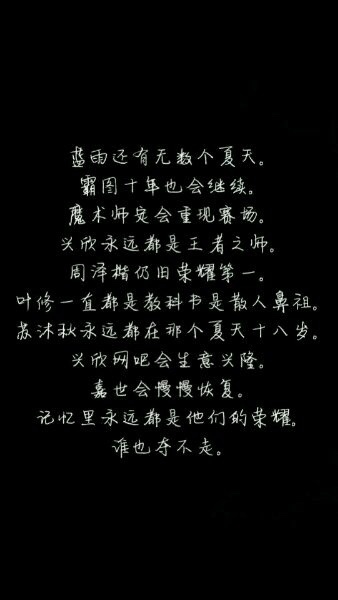 蓝雨还有无数个夏天。
霸图十年也会继续。
魔术师定会重现赛场。
兴欣永远都是王者之师。
周泽楷仍旧荣耀第一。
叶修一直都是教科书是散人鼻祖。
苏沐秋永远都在那个夏天十八岁。
兴欣网吧会生意兴隆。
嘉世会慢慢恢复。
记忆里永远都是他们的荣耀。
谁也夺不走。